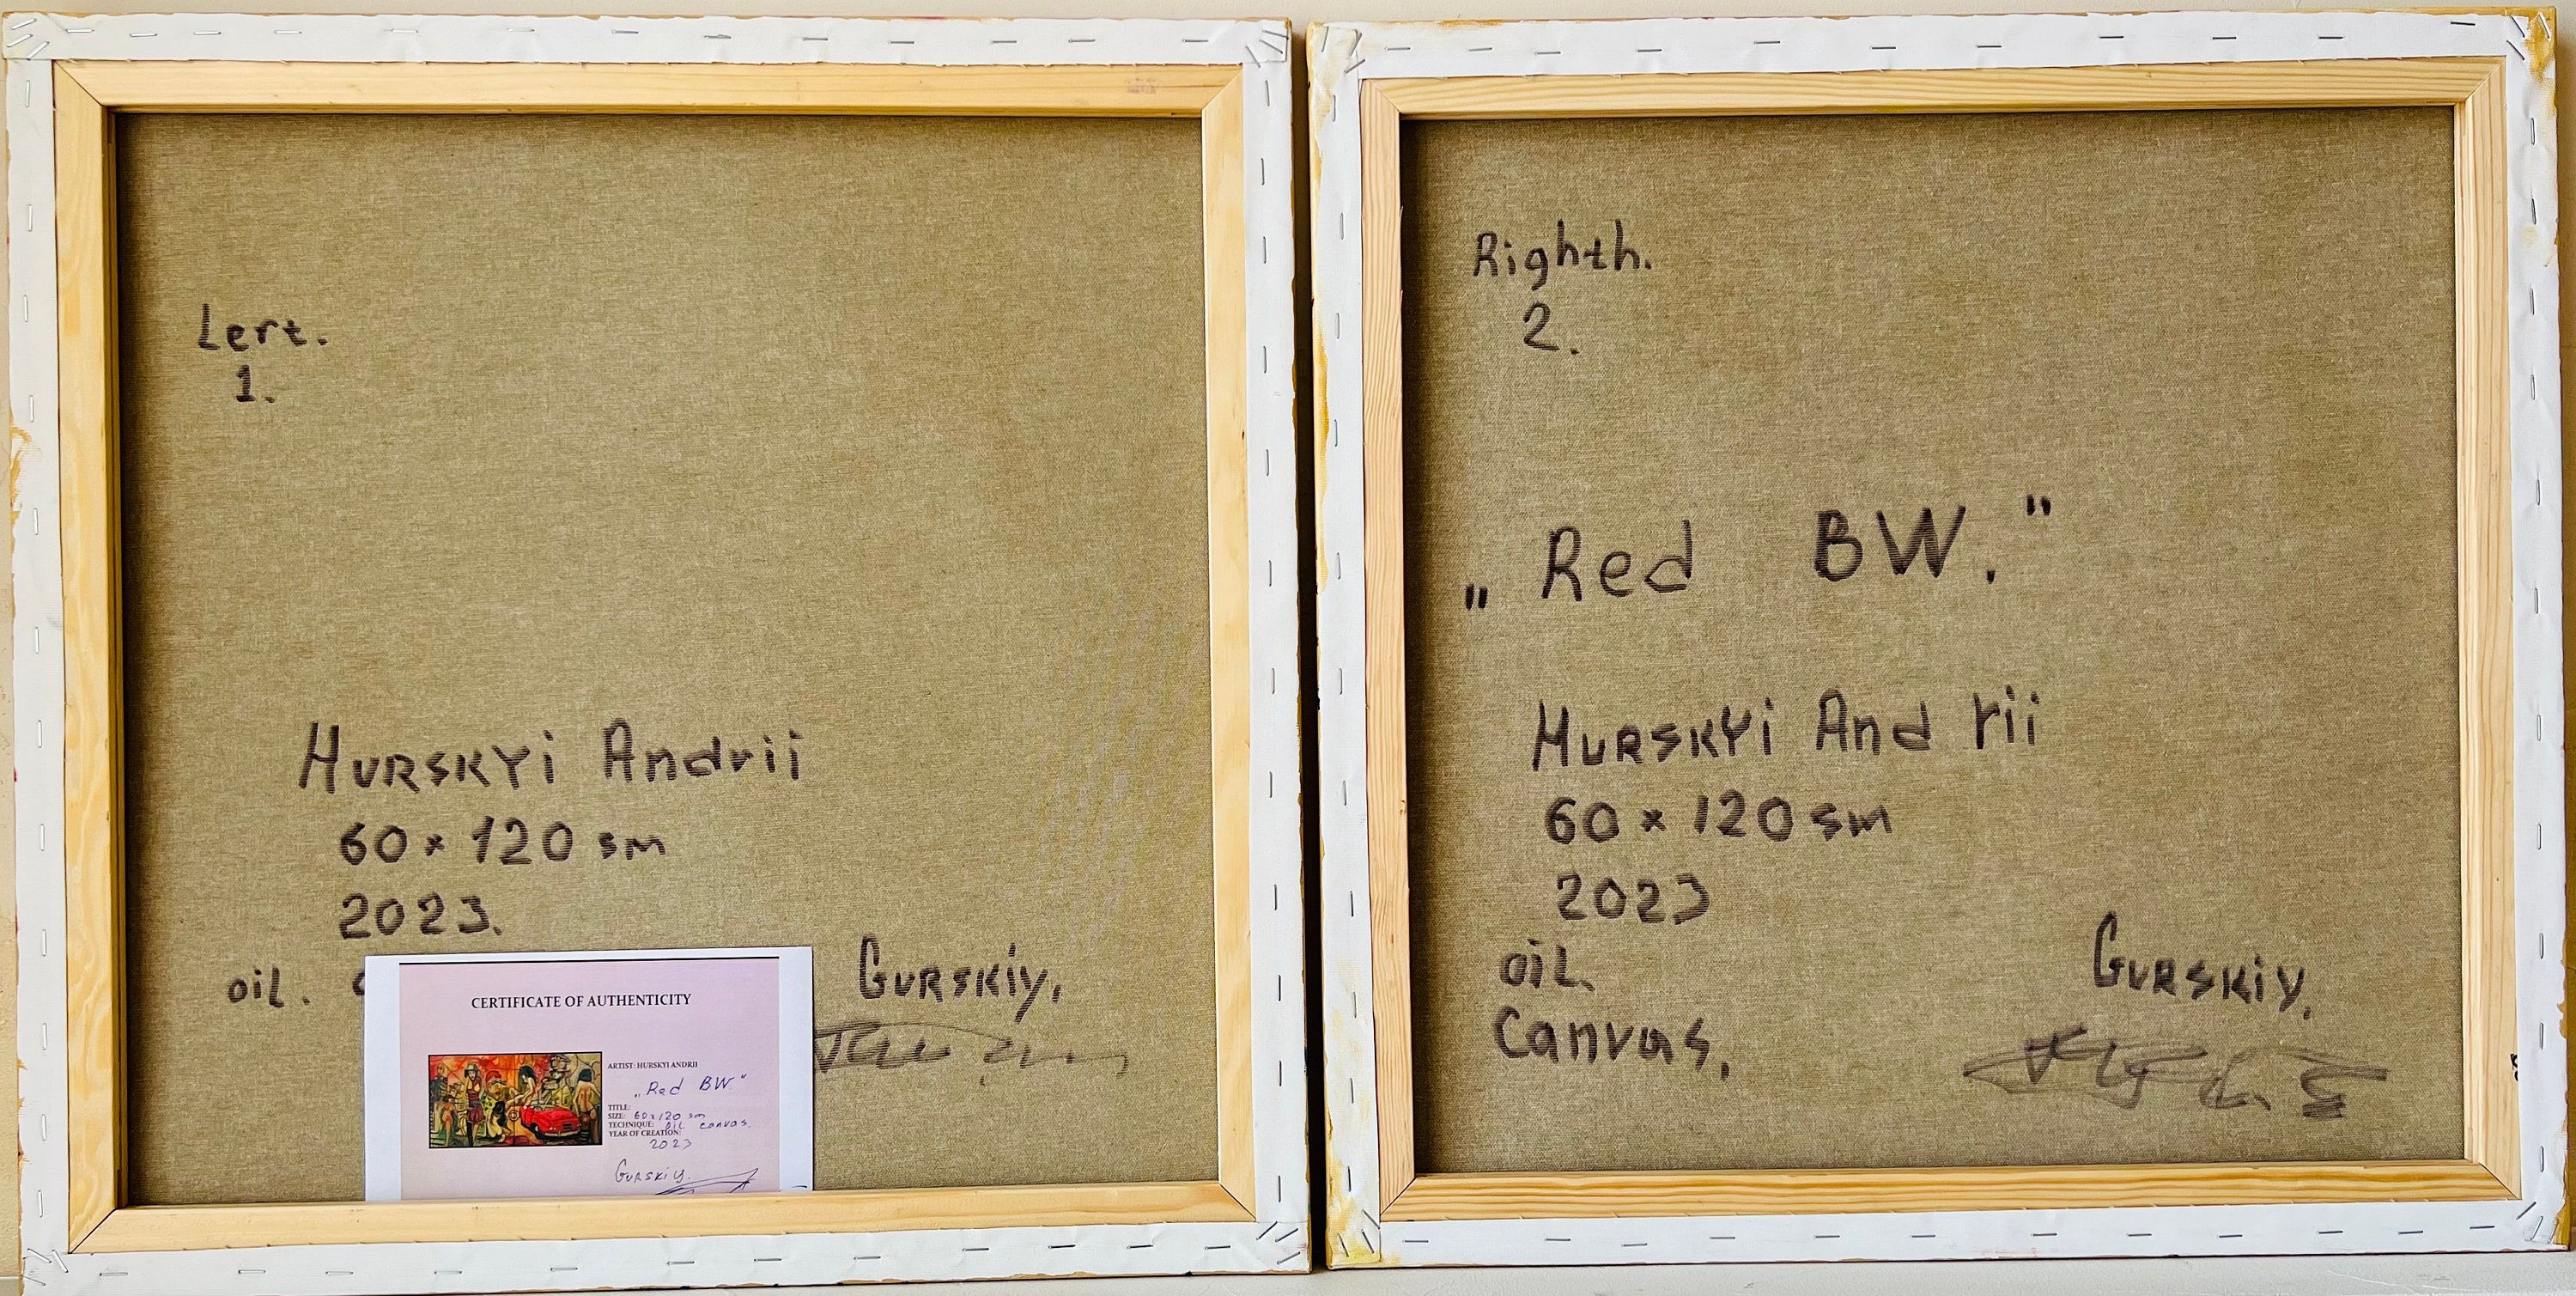 Lert.
1.
HURSKYi Andrii
60 x 120 sm
2023.
oil.
GURSKiy.
CERTIFICATE OF AUTHENTICITY
ARTIST: HURSKYI ANDRII
„Red BW"
TITLE:
SIZE: 60x120 sm
TECHNIQUE: oil canvas.
YEAR OF CREATION:
2023
GURSKiy.
Righth.
2.
„Red BW."
HURSKYi Andrii
60 x 120 sm
2023
oil.
Canvas.
GURSKiy.